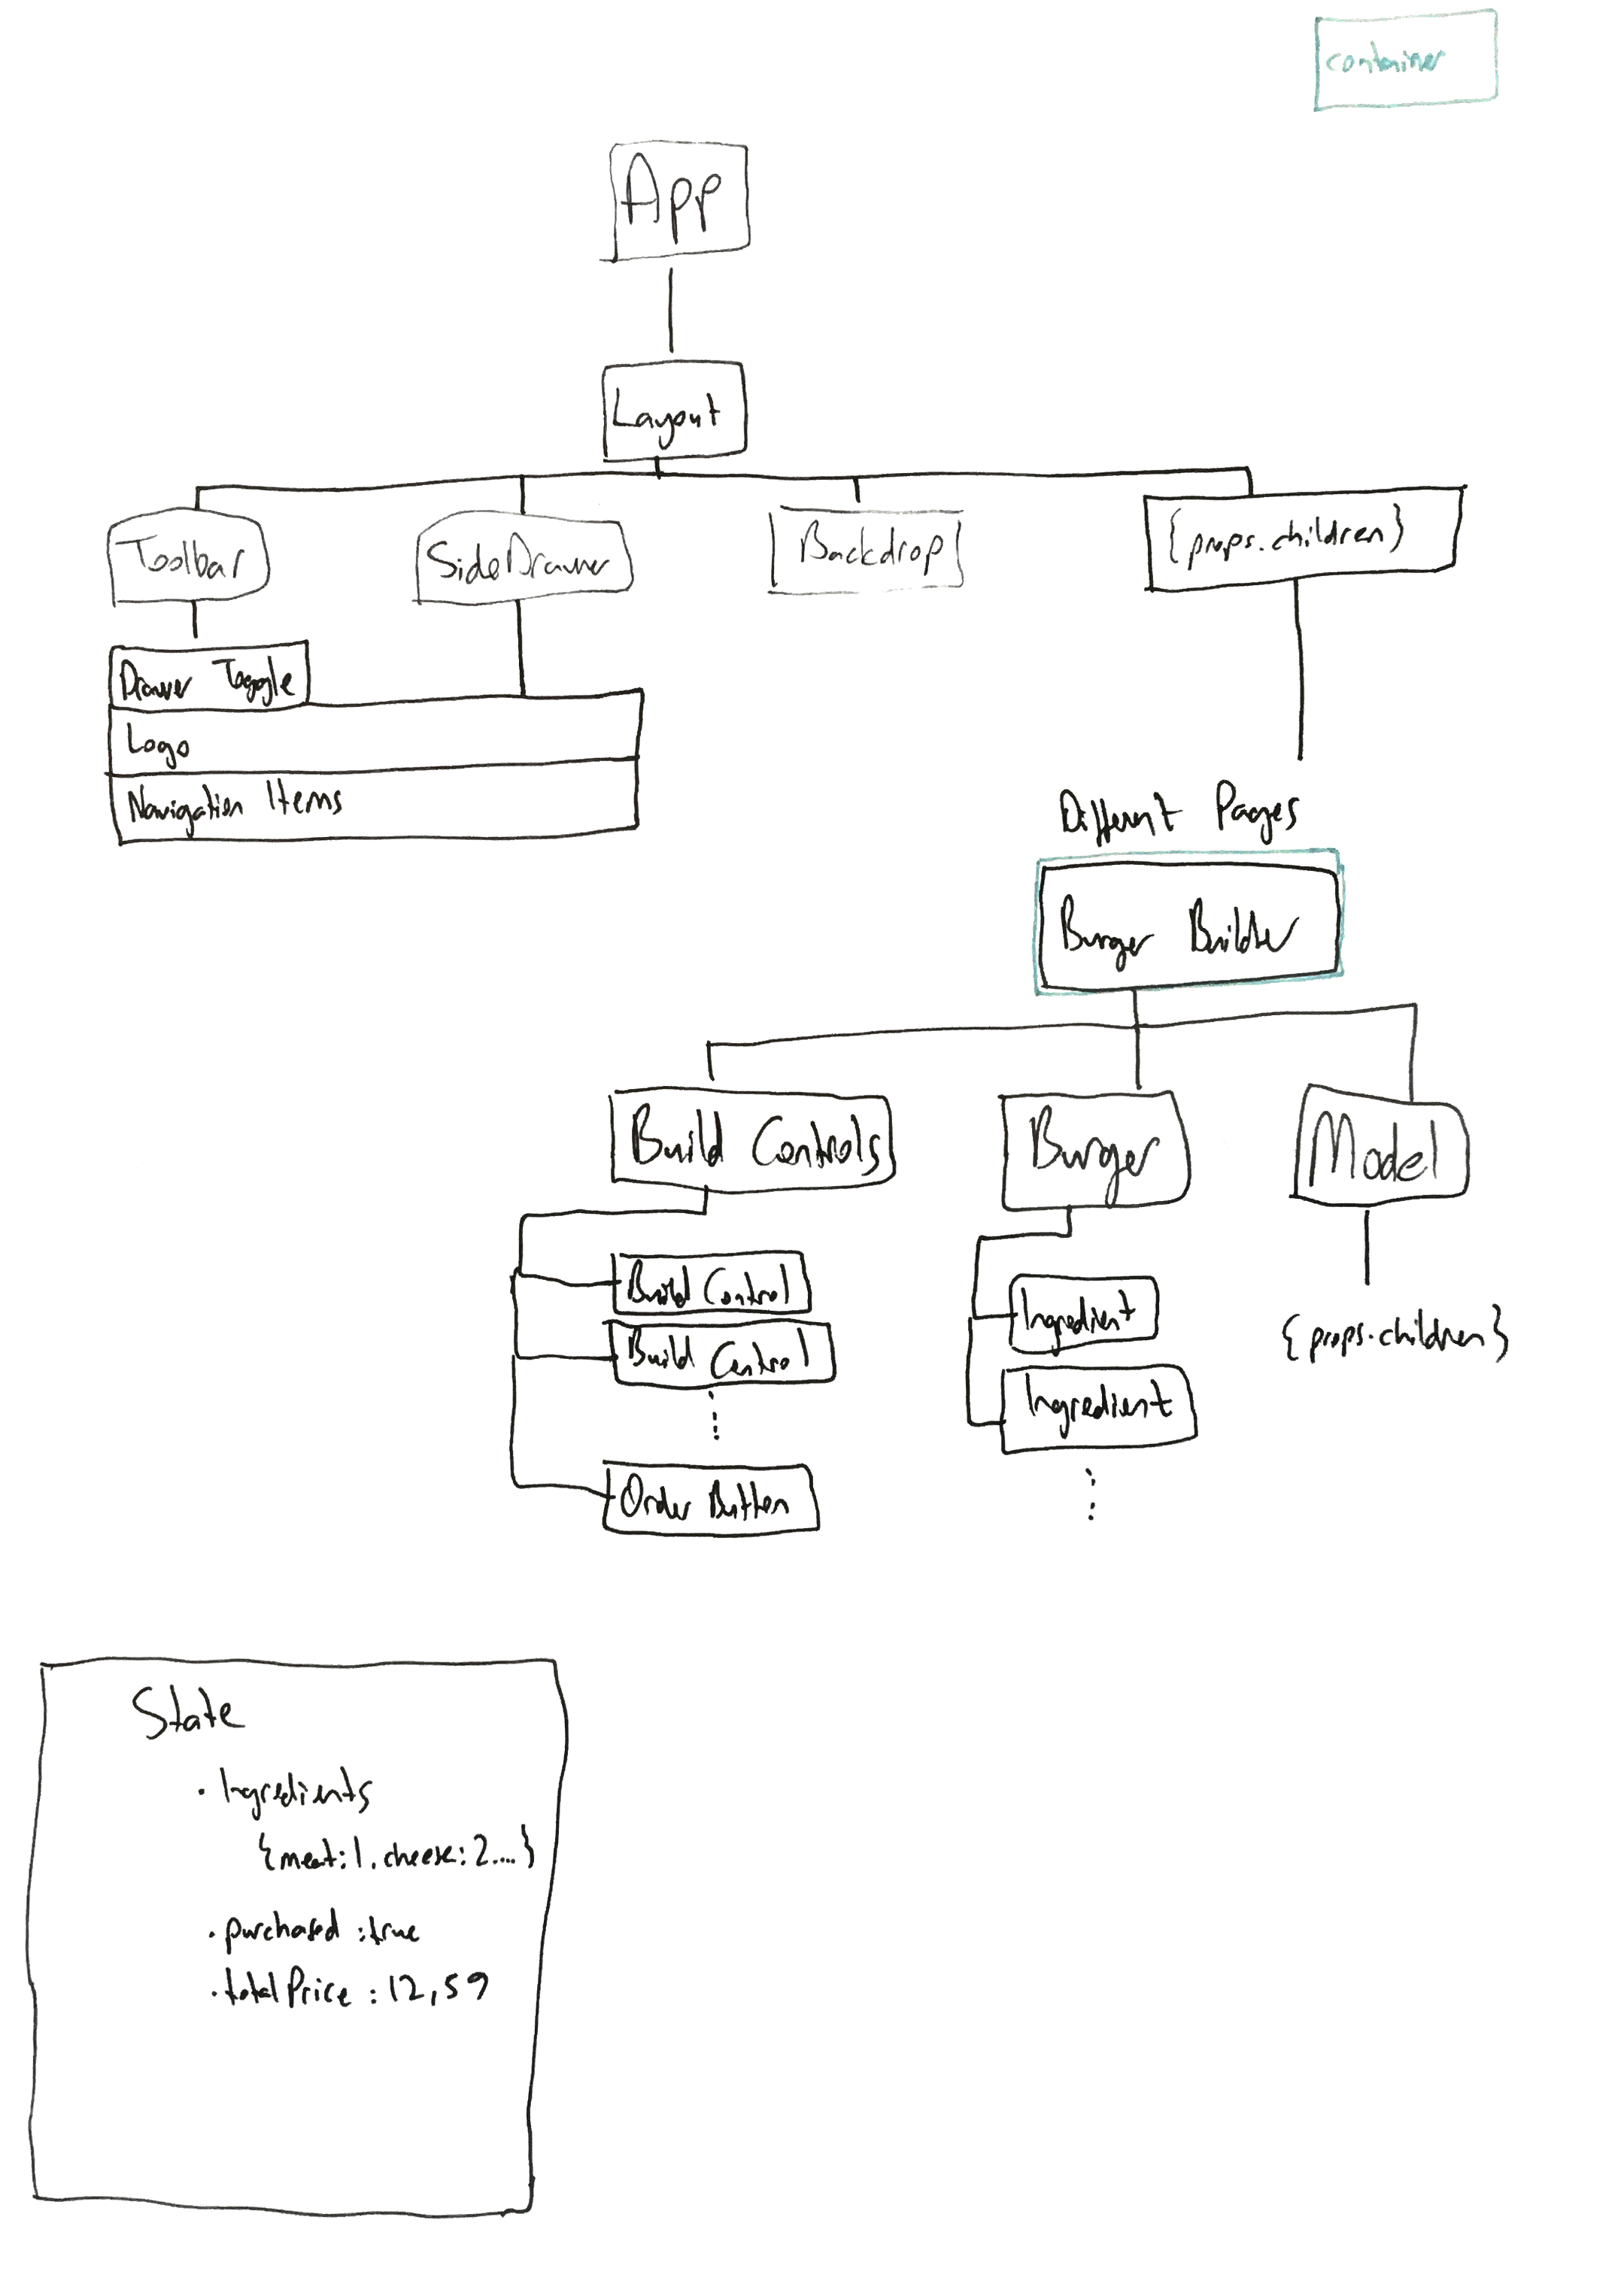 container
App
Layout
Toolbar
SideDrawer
Backdrop
{props.children}
Drawer Toggle
Logo
Navigation Items
Different Pages
Burger Builder
Build Controls
Burger
Model
Build Control
Build Control
Order Button
Ingredient
Ingredient
{props.children}
State
· Ingredients
{meat:1, cheese:2....}
· purchased :true
· totalPrice : 12,59